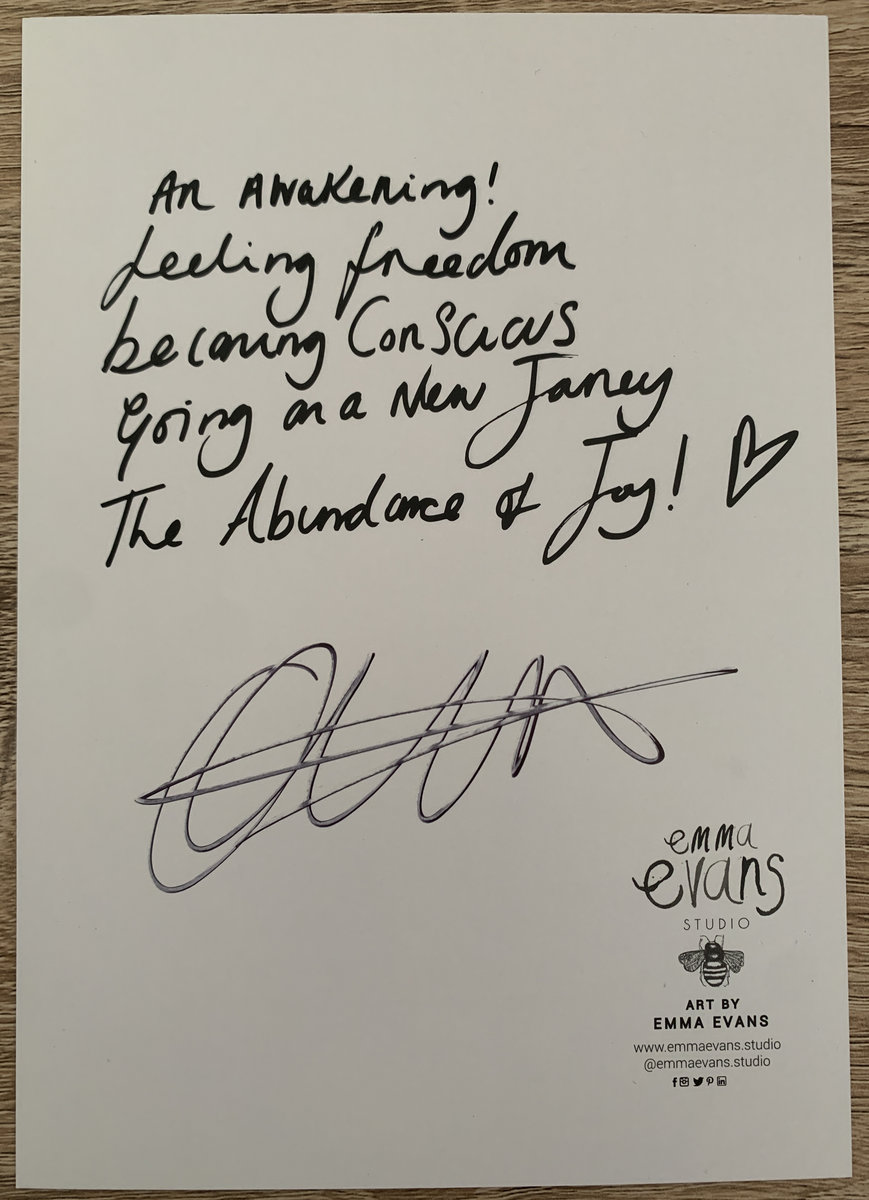 An Awakening!
feeling freedom
becoming Conscious
Going on a New Journey
The Abundance of Joy!
emma
evans
STUDIO
ART BY
EMMA EVANS
www.emmaevans.studio
@emmaevans.studio